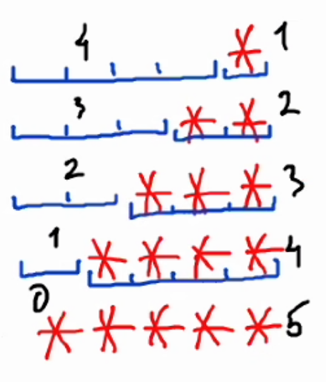 4 * 1
3 * * 2
2 * * * 3
1 * * * * 4
0 * * * * * 5